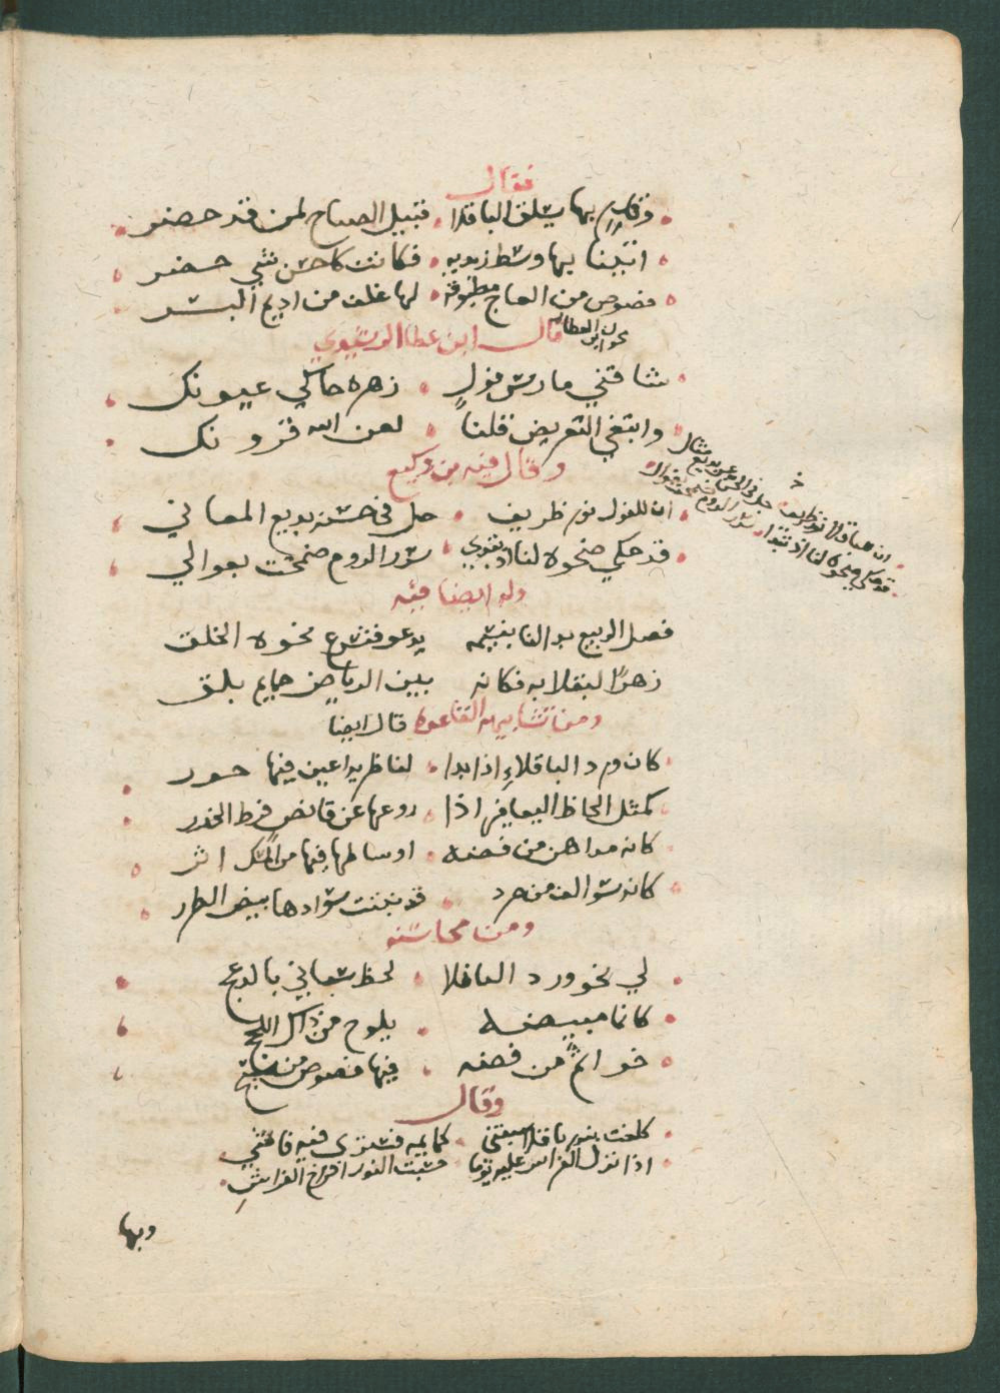 فقال
وقايم بها يسلق الباقلا • قبيل الصباح لمن قد حضر
اتينا بها وسط زبديه • فكانت كاحسن شي حضر
فصوص من العاج مطبوقه • لها غلف من اديم البشر
قال ابن عطا الرشيدي
شاقني مارمش فول • زهره حاكي عيونك
وابتغي التعريض قلنا • لعن الله قرونك
وقال فيه بن وكيع
ان للفول نور ظريف • جل في حسنه بديع المعاني
قد حكي صنحوه لنا اذ • سور الروم ضمخت بعوالي
ان هنا قلا نور ظريف جل في الحسن عن بديع مثال
قد حكي صنحوه لنا اذ تبدا سور الروم ضمخت بعوال
وله ايضا فيه
فصل الربيع بدا لنا بنسيمه يدعو فتسرع نحوه الخلق
زهرًا لبنقلابه فكانه بين الرياض حمايم بلق
ومن تشابيهه القاعوه قال ايضا
كان ورد الباقلاءِ اذا بدا • لناظريه اعين فيها حور
كمثل الحاظ اليعافير اذا • روعها عن قانص فرط الحذر
كانه مداهن من فضه • اوساطها فيها من المسك اثر
كانه سوالف من خرد • قد زينت سوادها بيض الطرر
ومن محاسنه
لي نحو ورد الباقلا • لحظ سباني بالدعج
كانما مبيضه • يلوح من ذاك اللجج
خواتمٌ من فضه • فيها فصوص من سبج
وقال
كلفت بنور باقلا سبتني • كمايمه فسرى فيه فاشي
اذا نزل الفراش عليه يوما • حسبت النور افراخ الفراشِ
وبها